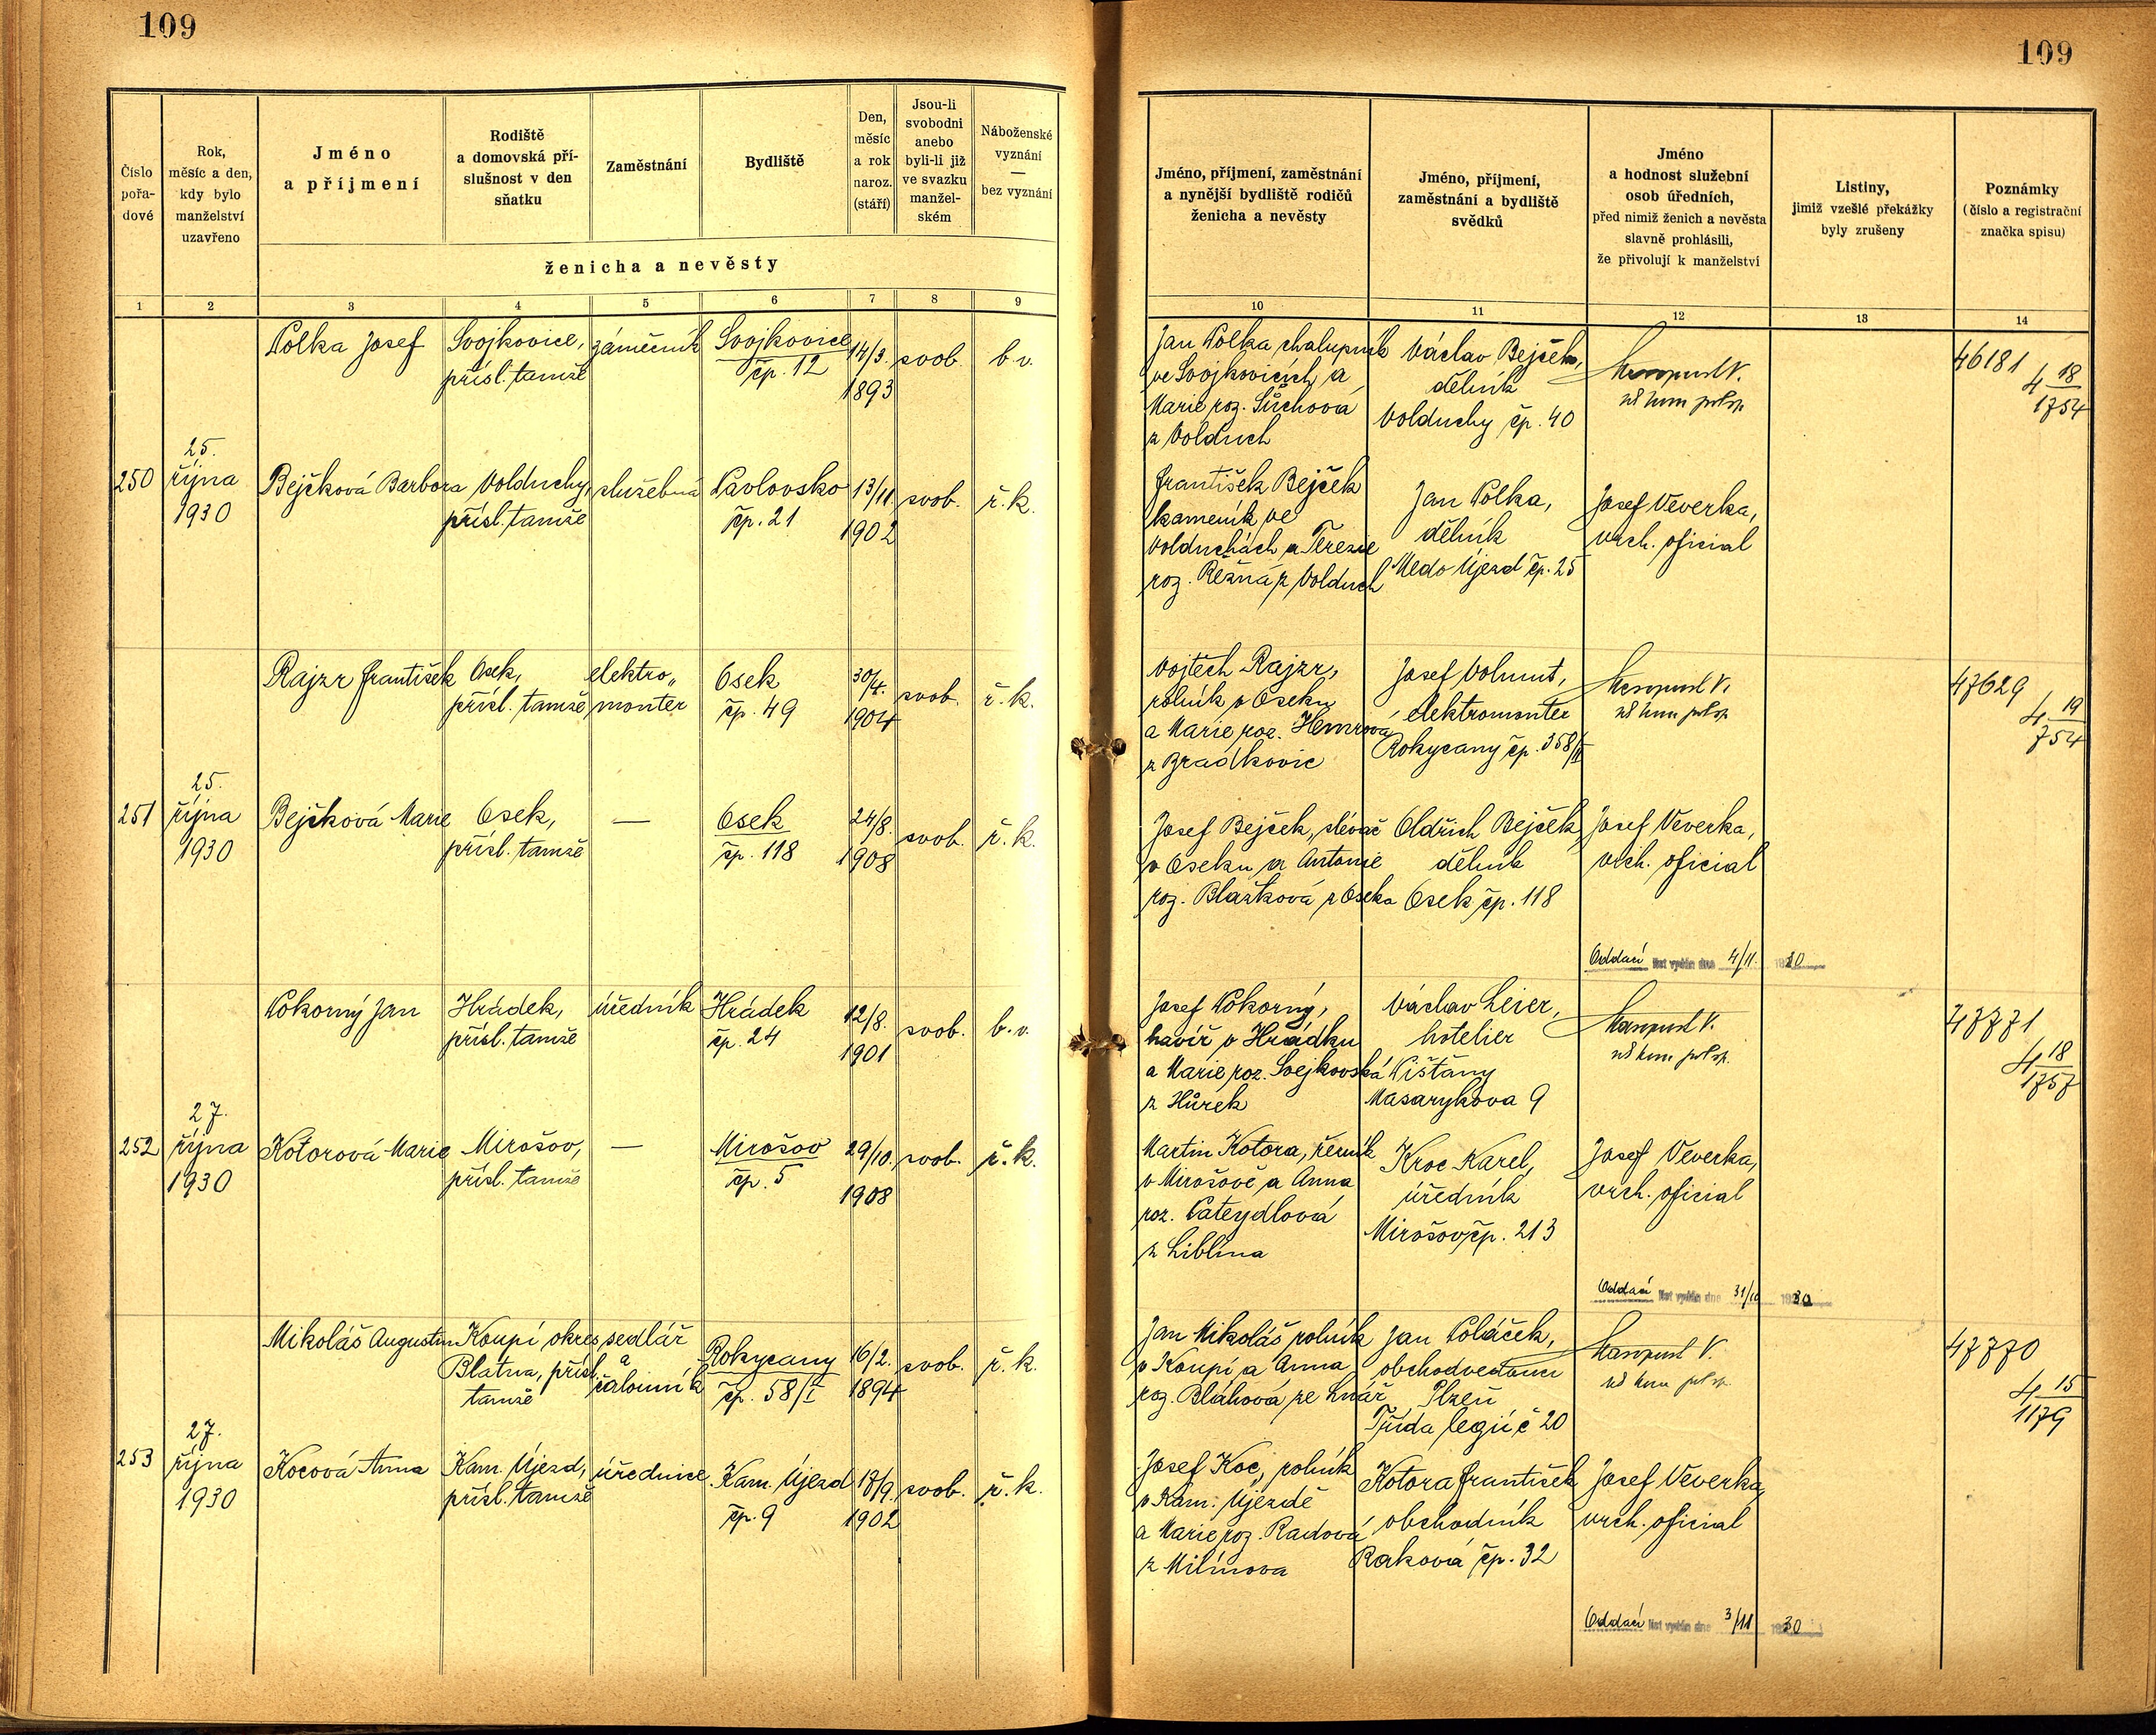 109
109
Číslo
pořa-
dové
Rok,
měsíc a den,
kdy bylo
manželství
uzavřeno
Jméno
a příjmení
Rodiště
a domovská pří-
slušnost v den
sňatku
Zaměstnání
Bydliště
Den,
měsíc
a rok
naroz.
(stáří)
Jsou-li
svobodni
anebo
byli-li již
ve svazku
manžel-
ském
Náboženské
vyznání
—
bez vyznání
ženicha a nevěsty
Jméno, příjmení, zaměstnání
a nynější bydliště rodičů
ženicha a nevěsty
Jméno, příjmení,
zaměstnání a bydliště
svědků
Jméno
a hodnost služební
osob úředních,
před nimiž ženich a nevěsta
slavně prohlásili,
že přivolují k manželství
Listiny,
jimiž vzešlé překážky
byly zrušeny
Poznámky
(číslo a registrační
značka spisu)
1 2 3 4 5 6 7 8 9
10 11 12 13 14
250
25.
října
1930
Polka Josef
Svojkovice,
přísl. tamže
zámečník
Svojkovice
čp. 12
14/3.
1893
svob.
b.v.
Jan Polka, chalupník
ve Svojkovicích a
Marie roz. Sůchová
z Volduch
Václav Bejček,
dělník
Volduchy čp. 40
46181
4 18
1754
Bejčková Barbora
Volduchy,
přísl. tamže
služebná
Pavlovsko
čp. 21
13/11
1902
svob.
ř.k.
František Bejček
kameník ve
Volduchách a Terezie
roz. Řežná z Volduch
Jan Polka,
dělník
Medo Újezd čp. 25
Josef Veverka,
vrch. oficial
251
25.
října
1930
Rajzr František
Osek,
přísl. tamže
elektro„
monter
Osek
čp. 49
30/4.
1904
svob.
ř.k.
Vojtěch Rajzr,
rolník v Oseku
a Marie roz. Hemrová
z Bradkovic
Josef Volmut,
elektromonter
Rokycany čp. 358/II
47629
4 19
754
Bejčková Marie
Osek,
přísl. tamže
—
Osek
čp. 118
24/8.
1908
svob.
ř.k.
Josef Bejček, slévač
v Oseku a Antonie
roz. Blažková z Oseka
Oldřich Bejček
dělník
Osek čp. 118
Josef Veverka,
vrch. oficial
Oddací list vydán dne 4/11. 1930
252
27.
října
1930
Pokorný Jan
Hrádek,
přísl. tamže
úředník
Hrádek
čp. 24
12/8.
1901
svob.
b.v.
Josef Pokorný,
havíř v Hrádku
a Marie roz. Svejkovská
z Hůrek
Václav Leier,
hotelier
Pišťany
Masarykova 9
47771
4 18
1757
Kotorová Marie
Mirošov,
přísl. tamže
—
Mirošov
čp. 5
29/10.
1908
svob.
ř.k.
Martin Kotora, řezník
v Mirošově a Anna
roz. Pateydlová
z Liblína
Kroc Karel,
úředník
Mirošov čp. 213
Josef Veverka,
vrch. oficial
Oddací list vydán dne 31/10 1930
253
27.
října
1930
Mikoláš Augustin
Koupí okres
Blatna, přísl.
tamže
sedlář
a
čalouník
Rokycany
čp. 58/I
16/2.
1894
svob.
ř.k.
Jan Mikoláš rolník
v Koupí a Anna
roz. Bláhová ze Lnář
Jan Poláček,
obchodvedoucí
Plzeň
Třída legií č 20
47770
4 15
1179
Kocová Anna
Kam. Újezd,
přísl. tamže
úřednice
Kam. Újezd
čp. 9
17/9.
1902
svob.
ř.k.
Josef Koc, rolník
v Kam. Újezdě
a Marie roz. Radová
z Milínova
Kotora František
obchodník
Raková čp. 32
Josef Veverka,
vrch. oficial
Oddací list vydán dne 3/11 1930